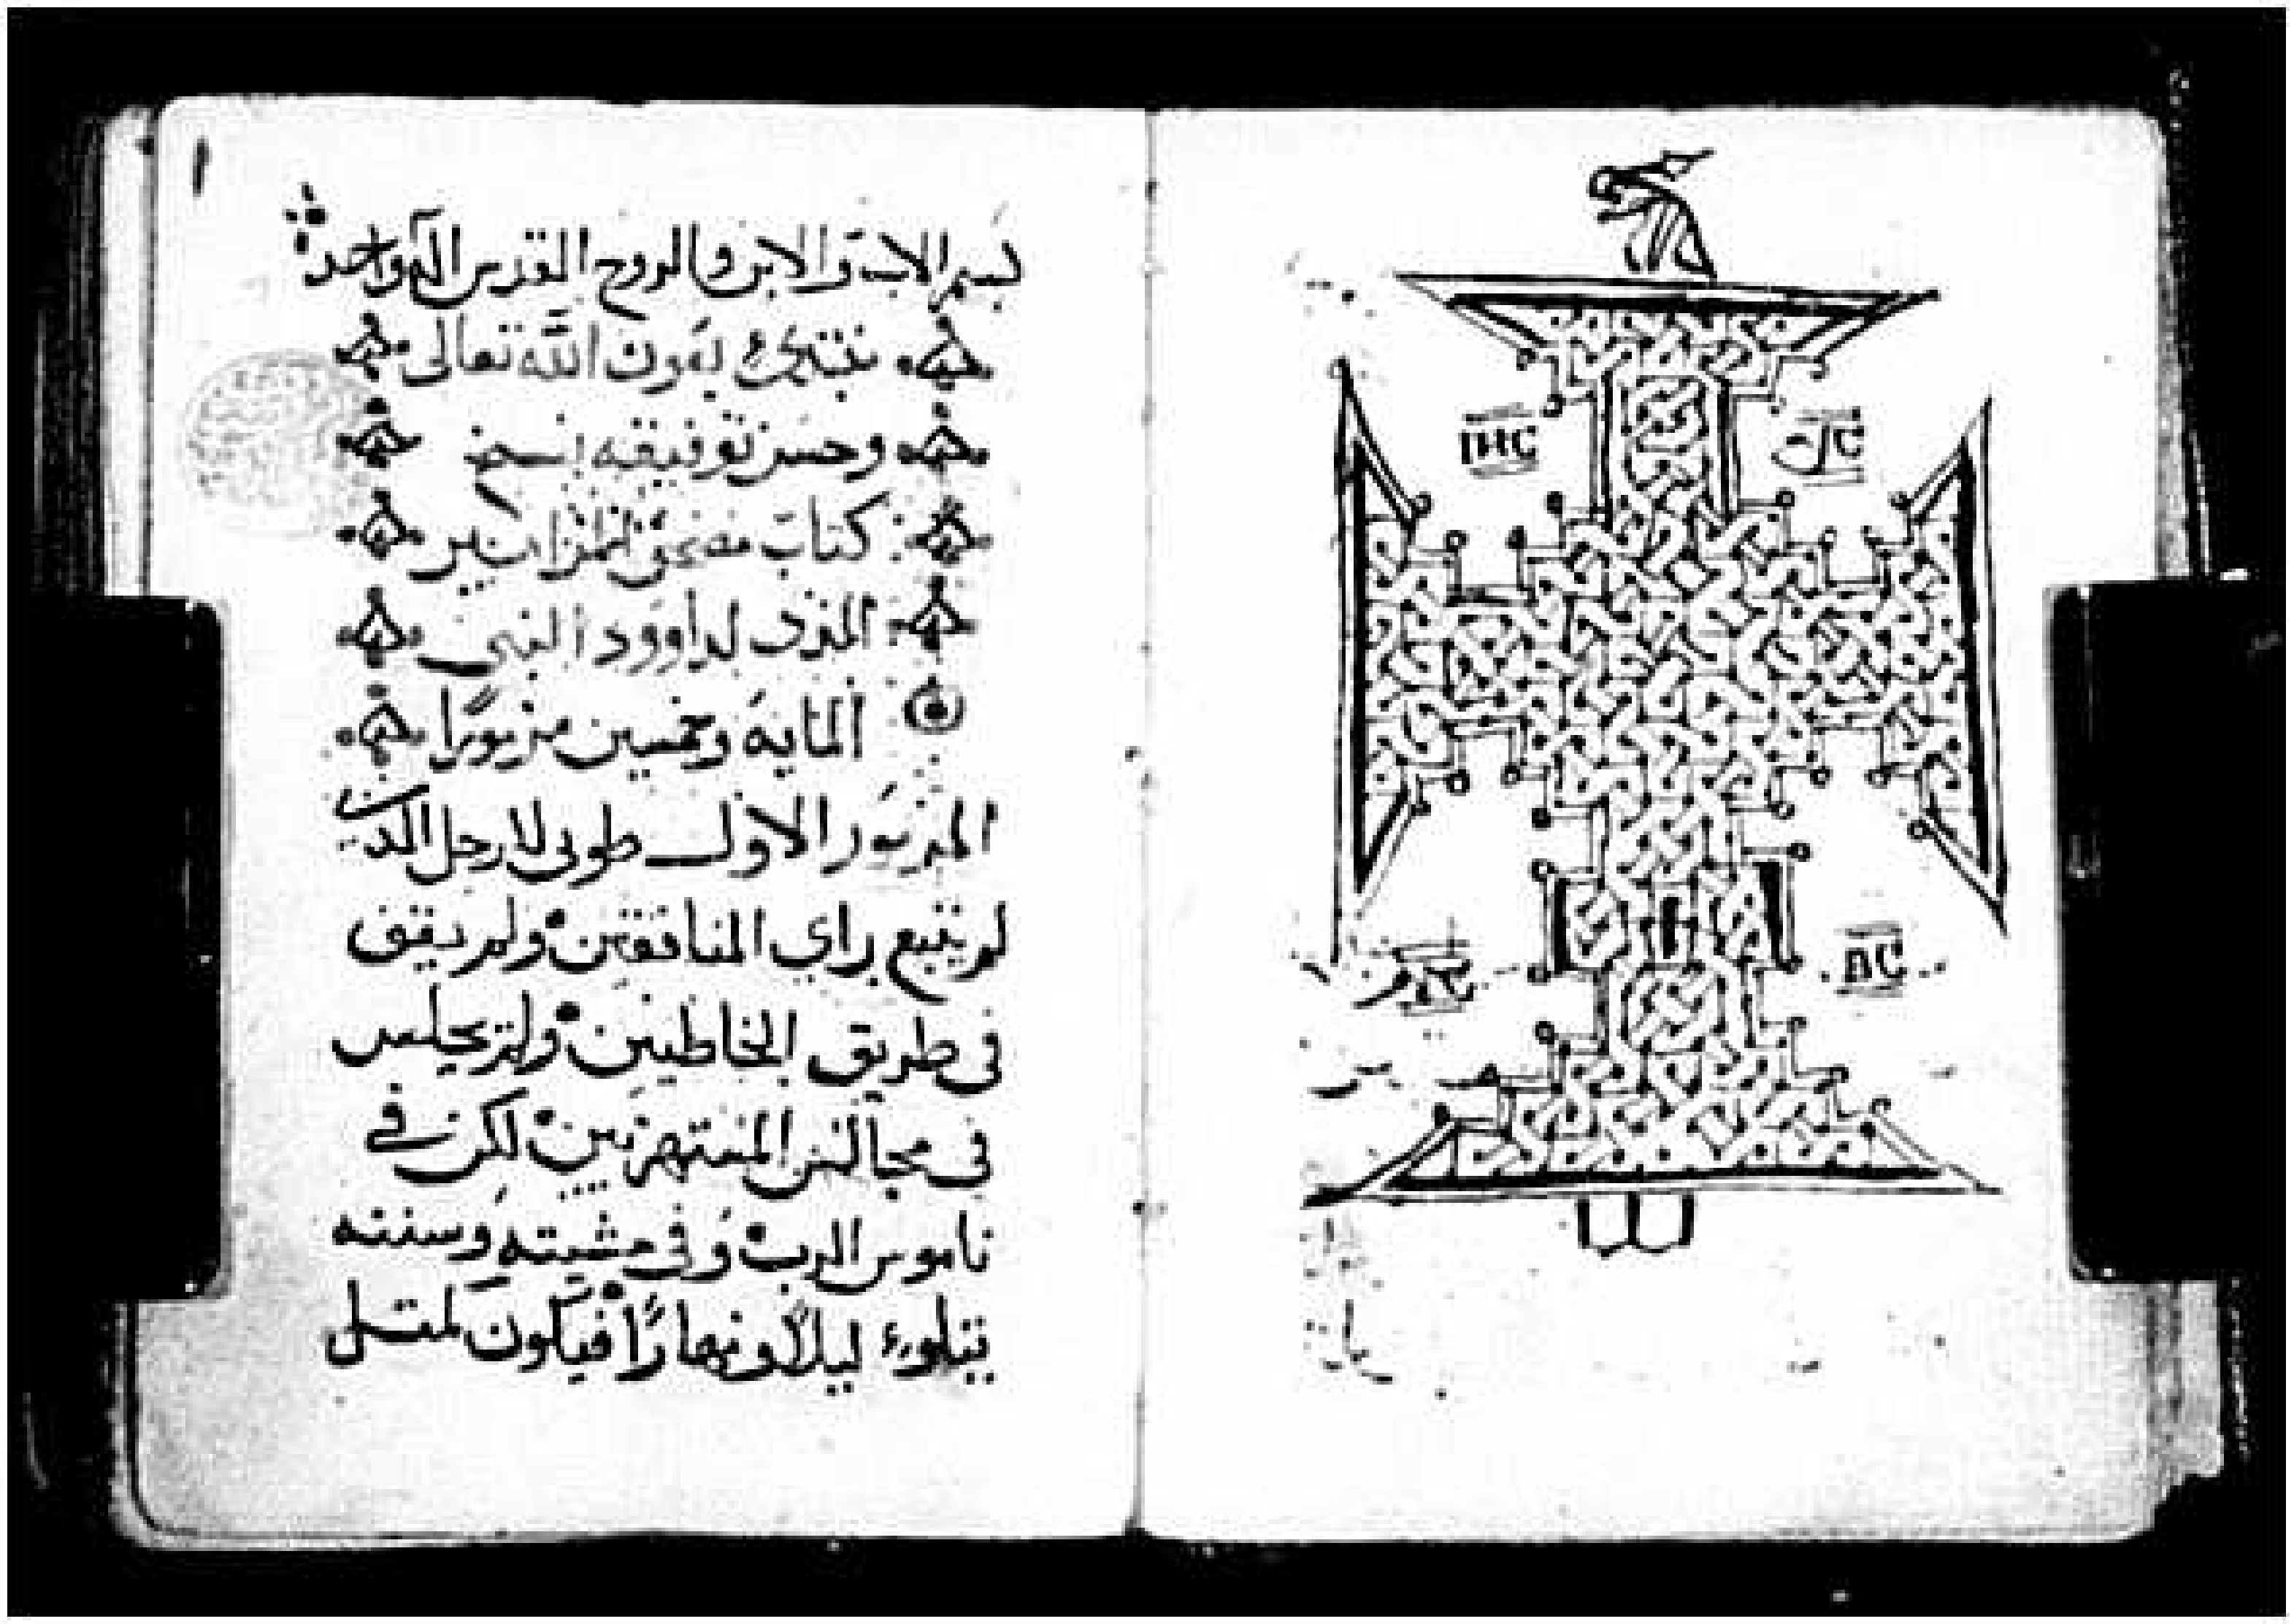 IHC
ΠC
١
بسم الاب والابن والروح القدس اله واحد
نبتدئ بعون الله تعالى
وحسن توفيقه بنسخ
كتاب
لداوود النبي
المايه وخمسين مزمورًا
المزمور الاول طوبى لارجل الذي
لم يتبع راي المنافقين ولم يقف
في طريق الخاطيين ولم يجلس
في مجالس المستهزيين لكن في
ناموس الرب وفي مشيته وسننه
يتلوء ليلاً ونهارًا فيكون كمتل